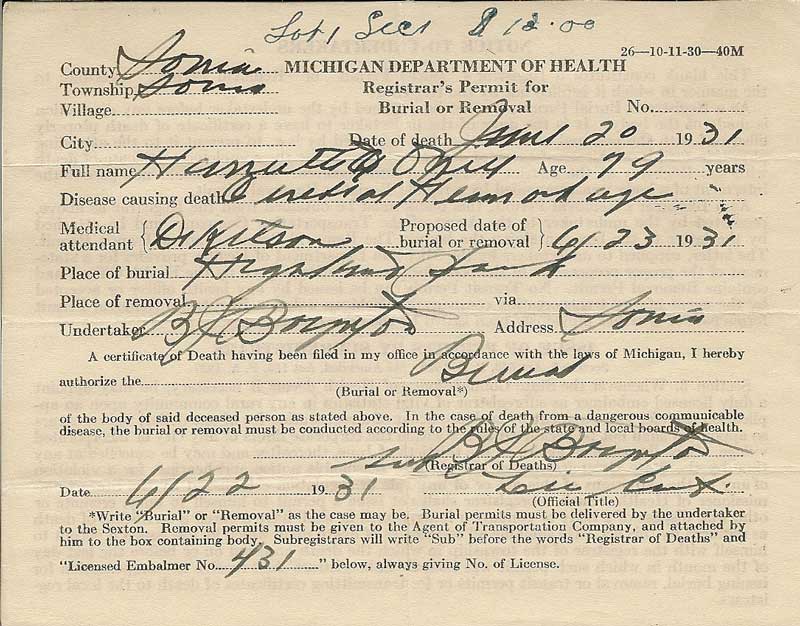 Lot 1 Sec 1 $12.00
26—10-11-30—40M
County Ionia MICHIGAN DEPARTMENT OF HEALTH
Township Ionia Registrar's Permit for
Village Burial or Removal No.
City Date of death June 20 1931
Full name Age 79 years
Disease causing death Cerebral Hemorhage
Medical attendant Dr Kitson Proposed date of burial or removal 6/23 1931
Place of burial Highland Park
Place of removal via
Undertaker B J Boynton Address Ionia
A certificate of Death having been filed in my office in accordance with the laws of Michigan, I hereby
authorize the Burial
(Burial or Removal*)
of the body of said deceased person as stated above. In the case of death from a dangerous communicable
disease, the burial or removal must be conducted according to the rules of the state and local boards of health.
Sub B J Boynton
(Registrar of Deaths)
Date 6/22 1931 Lic Emb.
(Official Title)
*Write "Burial" or "Removal" as the case may be. Burial permits must be delivered by the undertaker
to the Sexton. Removal permits must be given to the Agent of Transportation Company, and attached by
him to the box containing body. Subregistrars will write "Sub" before the words "Registrar of Deaths" and
"Licensed Embalmer No. 431" below, always giving No. of License.